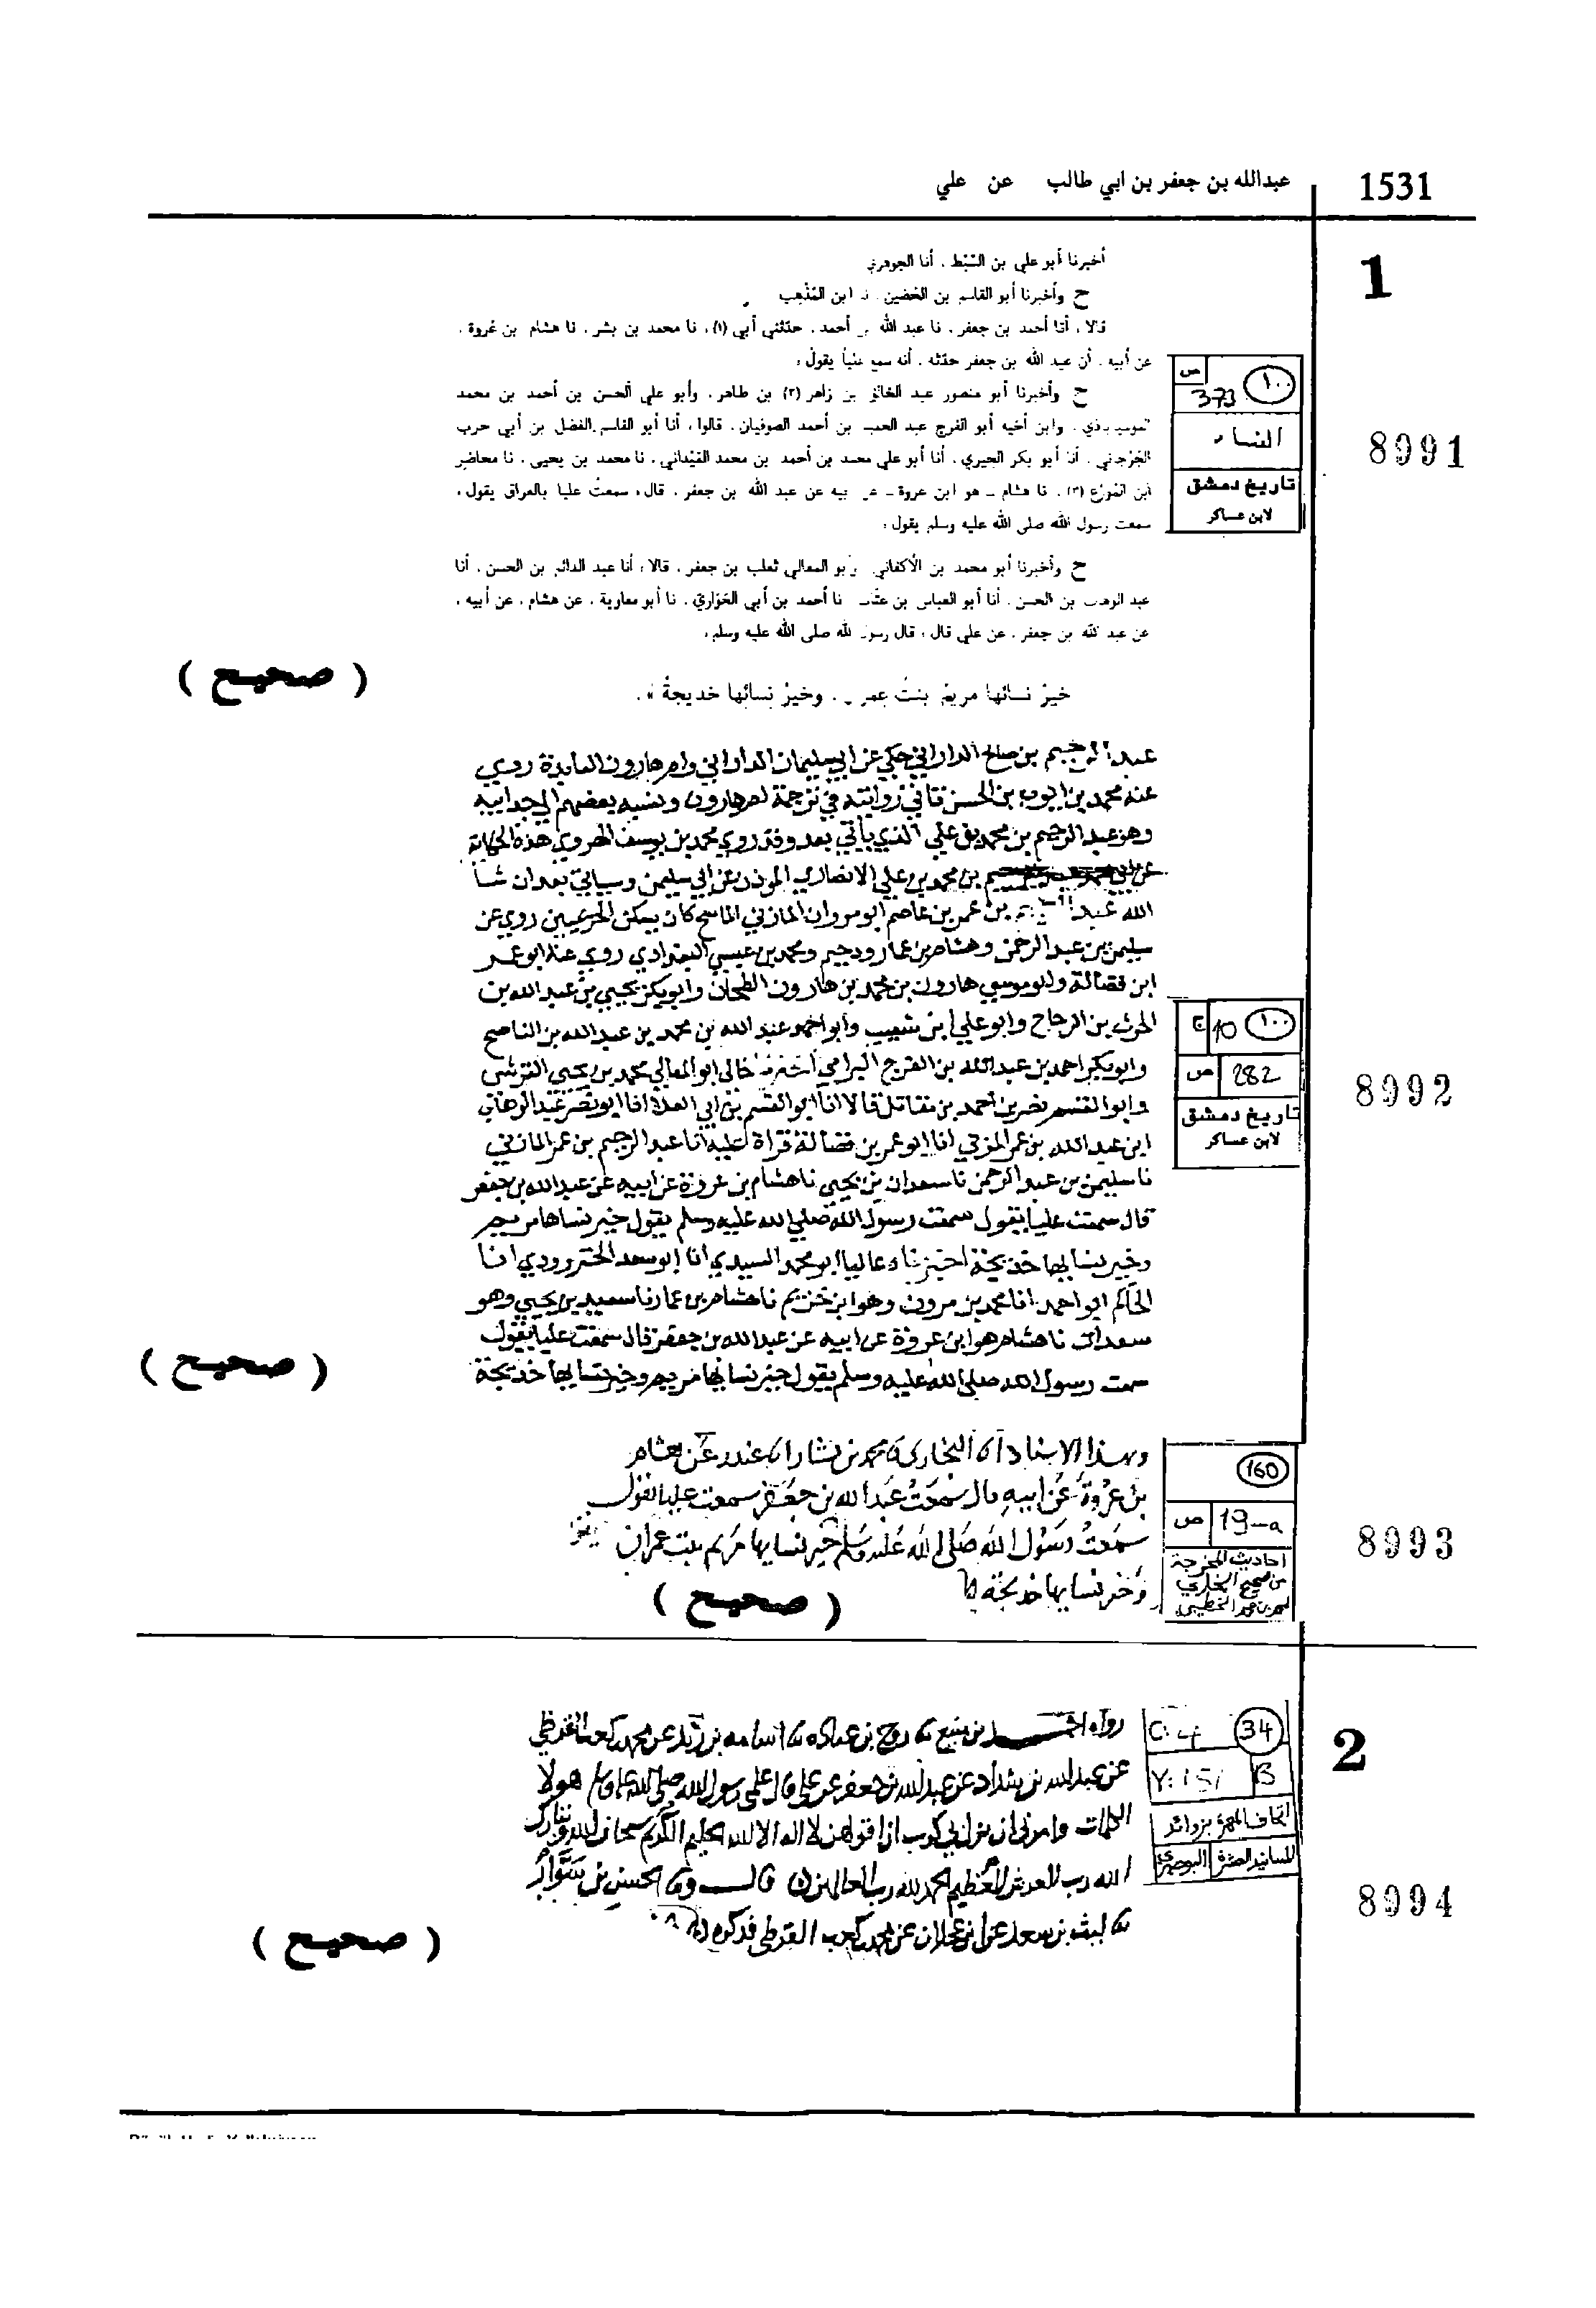 1531
عبدالله بن جعفر بن ابي طالب عن علي
1
أخبرنا أبو علي بن السبط . أنا الجوهري
ح وأخبرنا أبو القاسم بن الحصين . نا ابن المُذْهِب
قالا ، أنا أحمد بن جعفر . نا عبد الله بن أحمد . حدثني أبي (١) . نا محمد بن بشر . نا هشام بن عروة .
عن أبيه . أن عبد الله بن جعفر حدثه . أنه سمع علياً يقول ،
ح وأخبرنا أبو منصور عبد الخالق بن زاهر (٢) بن طاهر . وأبو علي الحسن بن أحمد بن محمد
وابن أخيه أبو الفرج عبد الصمد بن أحمد الصوفيان . قالوا ، أنا أبو القاسم الفضل بن أبي حرب
الجُرْجاني . أنا أبو بكر الحيري . أنا أبو علي محمد بن أحمد بن محمد المَيْداني . نا محمد بن يحيى . نا محاضر
ابن المُوَرِّع (٣) . نا هشام ـ هو ابن عروة ـ عن أبيه عن عبد الله بن جعفر . قال ، سمعتُ عليا بالعراق يقول ،
سمعت رسول الله صلى الله عليه وسلم يقول ،
ح وأخبرنا أبو محمد بن الأكفاني وأبو المعالي ثعلب بن جعفر . قالا ، أنا عبد الدائم بن الحسن . أنا
عبد الوهاب بن الحسن . أنا أبو العباس بن عتاب نا أحمد بن أبي الحَوَاري . نا أبو معاوية . عن هشام . عن أبيه .
عن عبد الله بن جعفر . عن علي قال ، قال رسول الله صلى الله عليه وسلم ،
خيرُ نسائها مريمُ بنتُ عمران . وخيرُ نسائها خديجةُ » .
( صحيح )
١٠٠
ص
373
النساء
تاريخ دمشق
لابن عساكر
8991
عبد الرحيم بن صالح الداراني حكي عن ابي سليمان الداراني وام هارون العابدة روي
عنه محمد بن ايوب بن الحسن تاتي روايته في ترجمة ام هارون ونسبه بعضهم الى جد ابيه
وهو عبد الرحيم بن محمد بن علي الذي ياتي بعد وقد روي محمد بن يوسف الهروي هذه الحكاية
بن محمد بن علي الانصاري الموذن عن ابي سليمن وسياتي بعد ان شا
الله عبد الرحيم بن عمر بن عاصم ابو مروان المازني الماسح كان يسكن روي عن
سليمن بن عبد الرحمن وهشام بن عمار ودحيم ومحمد بن عيسي البغدادي روي عنه ابو عمر
ابن فضالة وابو موسي هارون بن محمد بن هارون الطحان وابو بكر يحيي بن عبد الله بن
الحرث بن الزجاج وابو علي بن شعيب وابو احمد عبد الله بن محمد بن عبد الله بن الناصح
وابو بكر احمد بن عبد الله بن الفرج البرامي اخبرنا خالي ابو المعالي محمد بن يحيي القرشي
وابو القسم نصر بن احمد بن مقاتل قالا انا ابو القسم بن ابي العلا انا ابو نصر عبد الوهاب
ابن عبد الله بن عمر المزني انا ابو عمر بن فضالة قراة عليه انا عبد الرحيم بن عمر المازني
نا سليمن بن عبد الرحمن نا سعدان بن يحيي نا هشام بن عروة عن ابيه عن عبد الله بن جعفر
قال سمعت عليا يقول سمعت رسول الله صلي الله عليه وسلم يقول خير نساها مريم
وخير نسايها خديجة اخبرناه عاليا ابو محمد السيدي انا ابو سعد الجنزرودي انا
الحاكم ابو احمد انا محمد بن مرون وهو ابن خريم نا هشام بن عمار نا سعيد بن يحيي وهو
سعدان نا هشام هو ابن عروة عن ابيه عن عبد الله بن جعفر قال سمعت عليا يقول
سمعت رسول الله صلي الله عليه وسلم يقول خير نسايها مريم وخير نسايها خديجة
( صحيح )
١٠٠
10
ج
282
ص
تاريخ دمشق
لابن عساكر
8992
وبهذا الاسناد انا البخاري نا محمد بن بشار نا غندر عن هشام
بن عروة عن ابيه قال سمعت عبد الله بن جعفر سمعت عليا يقول
سمعت رسول الله صلى الله عليه وسلم خير نسايها مريم بنت عمران
وخير نسايها خديجة
( صحيح )
160
19-a
ص
احاديث المخرجة
من صحيح البخاري
8993
2
رواه احمد بن منيع نا روح بن عبادة نا اسامه بن زيد عن محمد بن كعب القرظي
عن عبد الله بن شداد عن عبد الله بن جعفر عن علي قال علمني رسول الله صلى الله عليه وسلم هولا
الكلمات وامرني ان نزل بي كرب ان اقولهن لا اله الا الله الحليم الكريم سبحان الله وتبارك
الله رب العرش العظيم الحمد لله رب العالمين قال ونا الحسن بن سوار
نا ليث بن سعد عن ابن عجلان عن محمد بن كعب القرظي فذكره
( صحيح )
34
C: 4
B
Y: 151
اتحاف المهرة بزوائد
المسانيد العشرة
البوصيري
8994